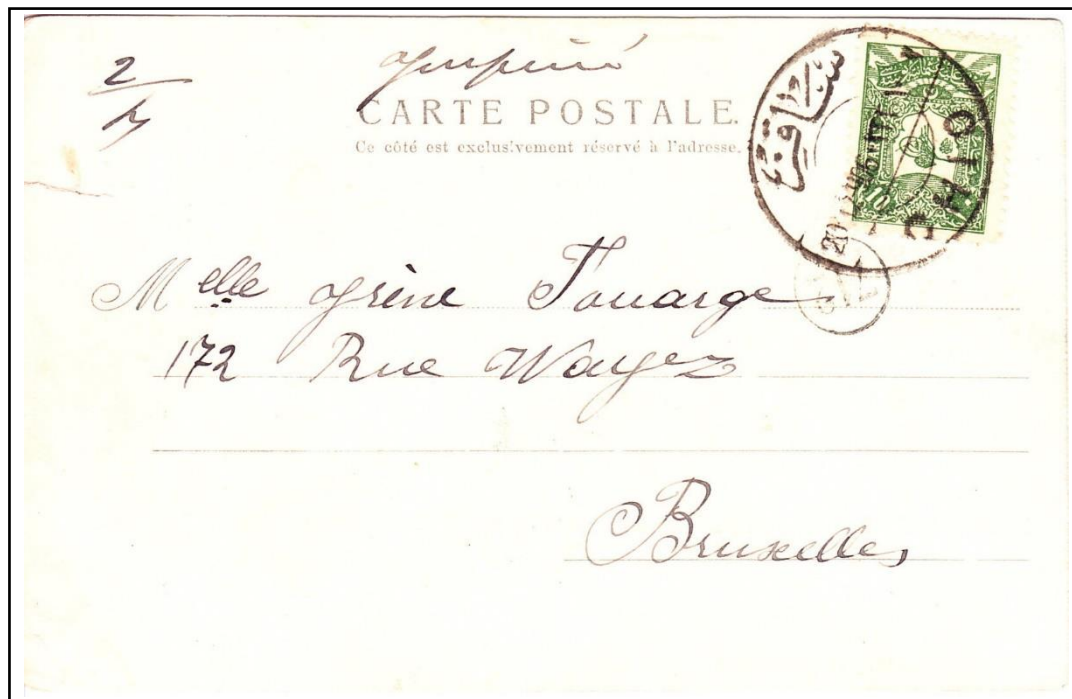 2
Imprimé
CARTE POSTALE.
Ce côté est exclusivement réservé à l'adresse.
CHIO
10
Melle Irène Touarge
172 Rue Wayez
Bruxelles